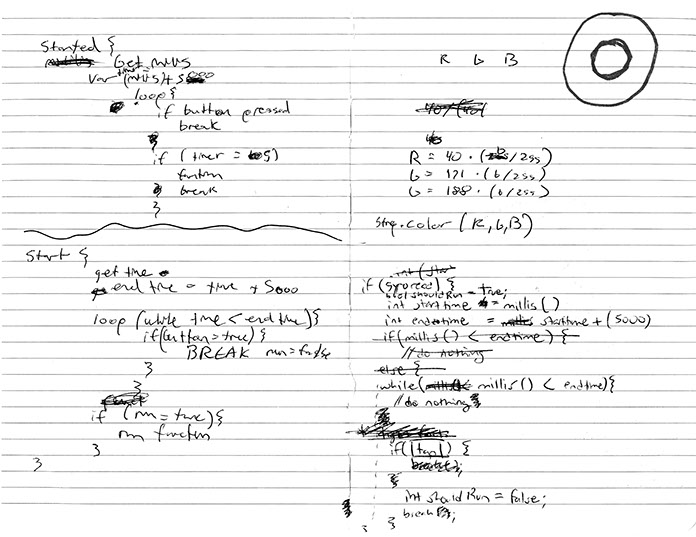 Started {
Get millis
var time = (millis) + 5000
loop {
if button pressed
break
if (timer = 5)
function
break
}
Start {
get time
end time = time + 5000
loop (while time < end time) {
if (button = true) {
BREAK run = false
}
}
if (run = true) {
run function
}
}
R G B
R = 40 · (b/255)
G = 171 · (b/255)
G = 188 · (b/255)
Strip.color (R, G, B)
int (star
if (spread) {
bool shouldRun = true;
int starttime = millis()
int endtime = starttime + (5000)
if (millis() < endtime) {
// do nothing
else {
while (millis() < endtime) {
// do nothing
if (|tap|) {
break;
int shouldRun = false;
break;
}
}